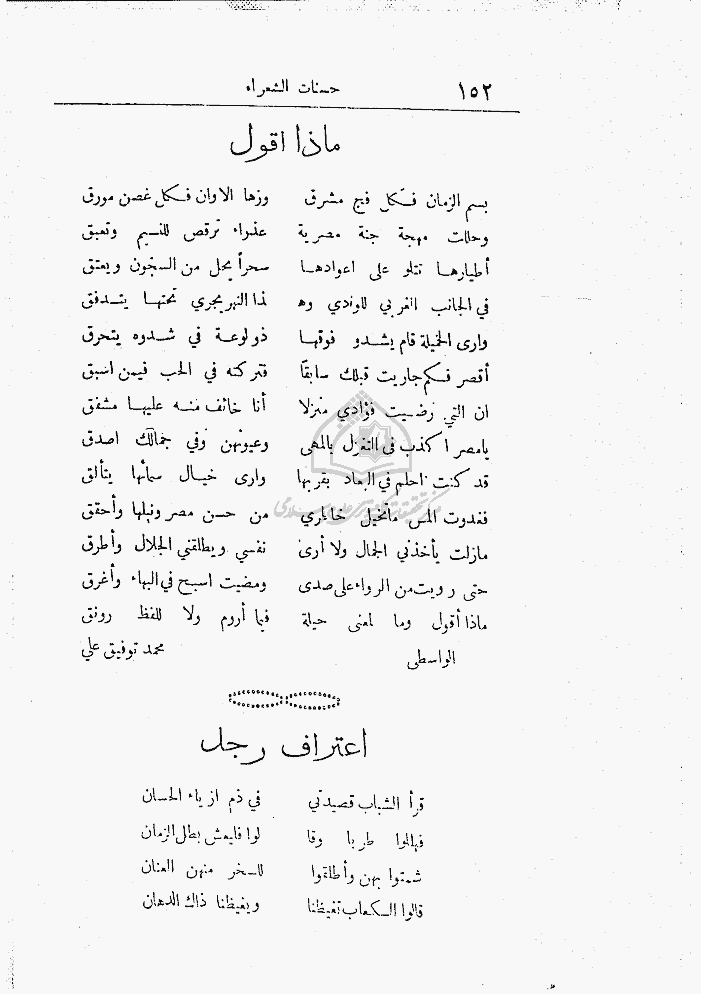 ١٥٢ حسنات الشعراء
ماذا اقول
بسم الزمان فكل فج مشرق وزها الاوان فكل غصن مورق
وحللت مهجة جنة مصرية عذراء ترقص للنسيم وتعبق
أطيارها تتلو على اعوادها سحراً يحل من السجون ويعتق
في الجانب الغربي للوادي وهـ لذا النهر يجري تحتها يتدفق
وارى الخميلة قام يشدو فوقها ذو لوعة في شدوه يتحرق
أقصر فكم جاريت قبلك سابقًا فتركته في الحب فيمن اسبق
ان التي رضيت فؤادي منزلا أنا خائف منه عليها مشفق
يامصر اكذب في التغزل بالمهى وعيونهن وفي جمالك اصدق
قد كنت احلم في البعاد بقربها وارى خيال سمائها يتألق
فغدوت المس ماتخيل خاطري من حسن مصر ونيلها وأحقق
مازلت يأخذني الجمال ولا أرى نفسي ويطلقني الجلال وأطرق
حتى رويت من الرواء على صدى ومضيت اسبح في البهاء وأغرق
ماذا أقول وما لمعنى حيلة فيما أروم ولا للفظ رونق
الواسطى محمد توفيق علي
اعتراف رجل
قرأ الشباب قصيدتي في ذم ازياء الحسان
فهللوا طربا وقا لوا فليعش بطل الزمان
شمتوا بهن وأطلقوا للسخر منهن العنان
قالوا الكعاب تغيظنا ويغيظنا ذاك الدهان